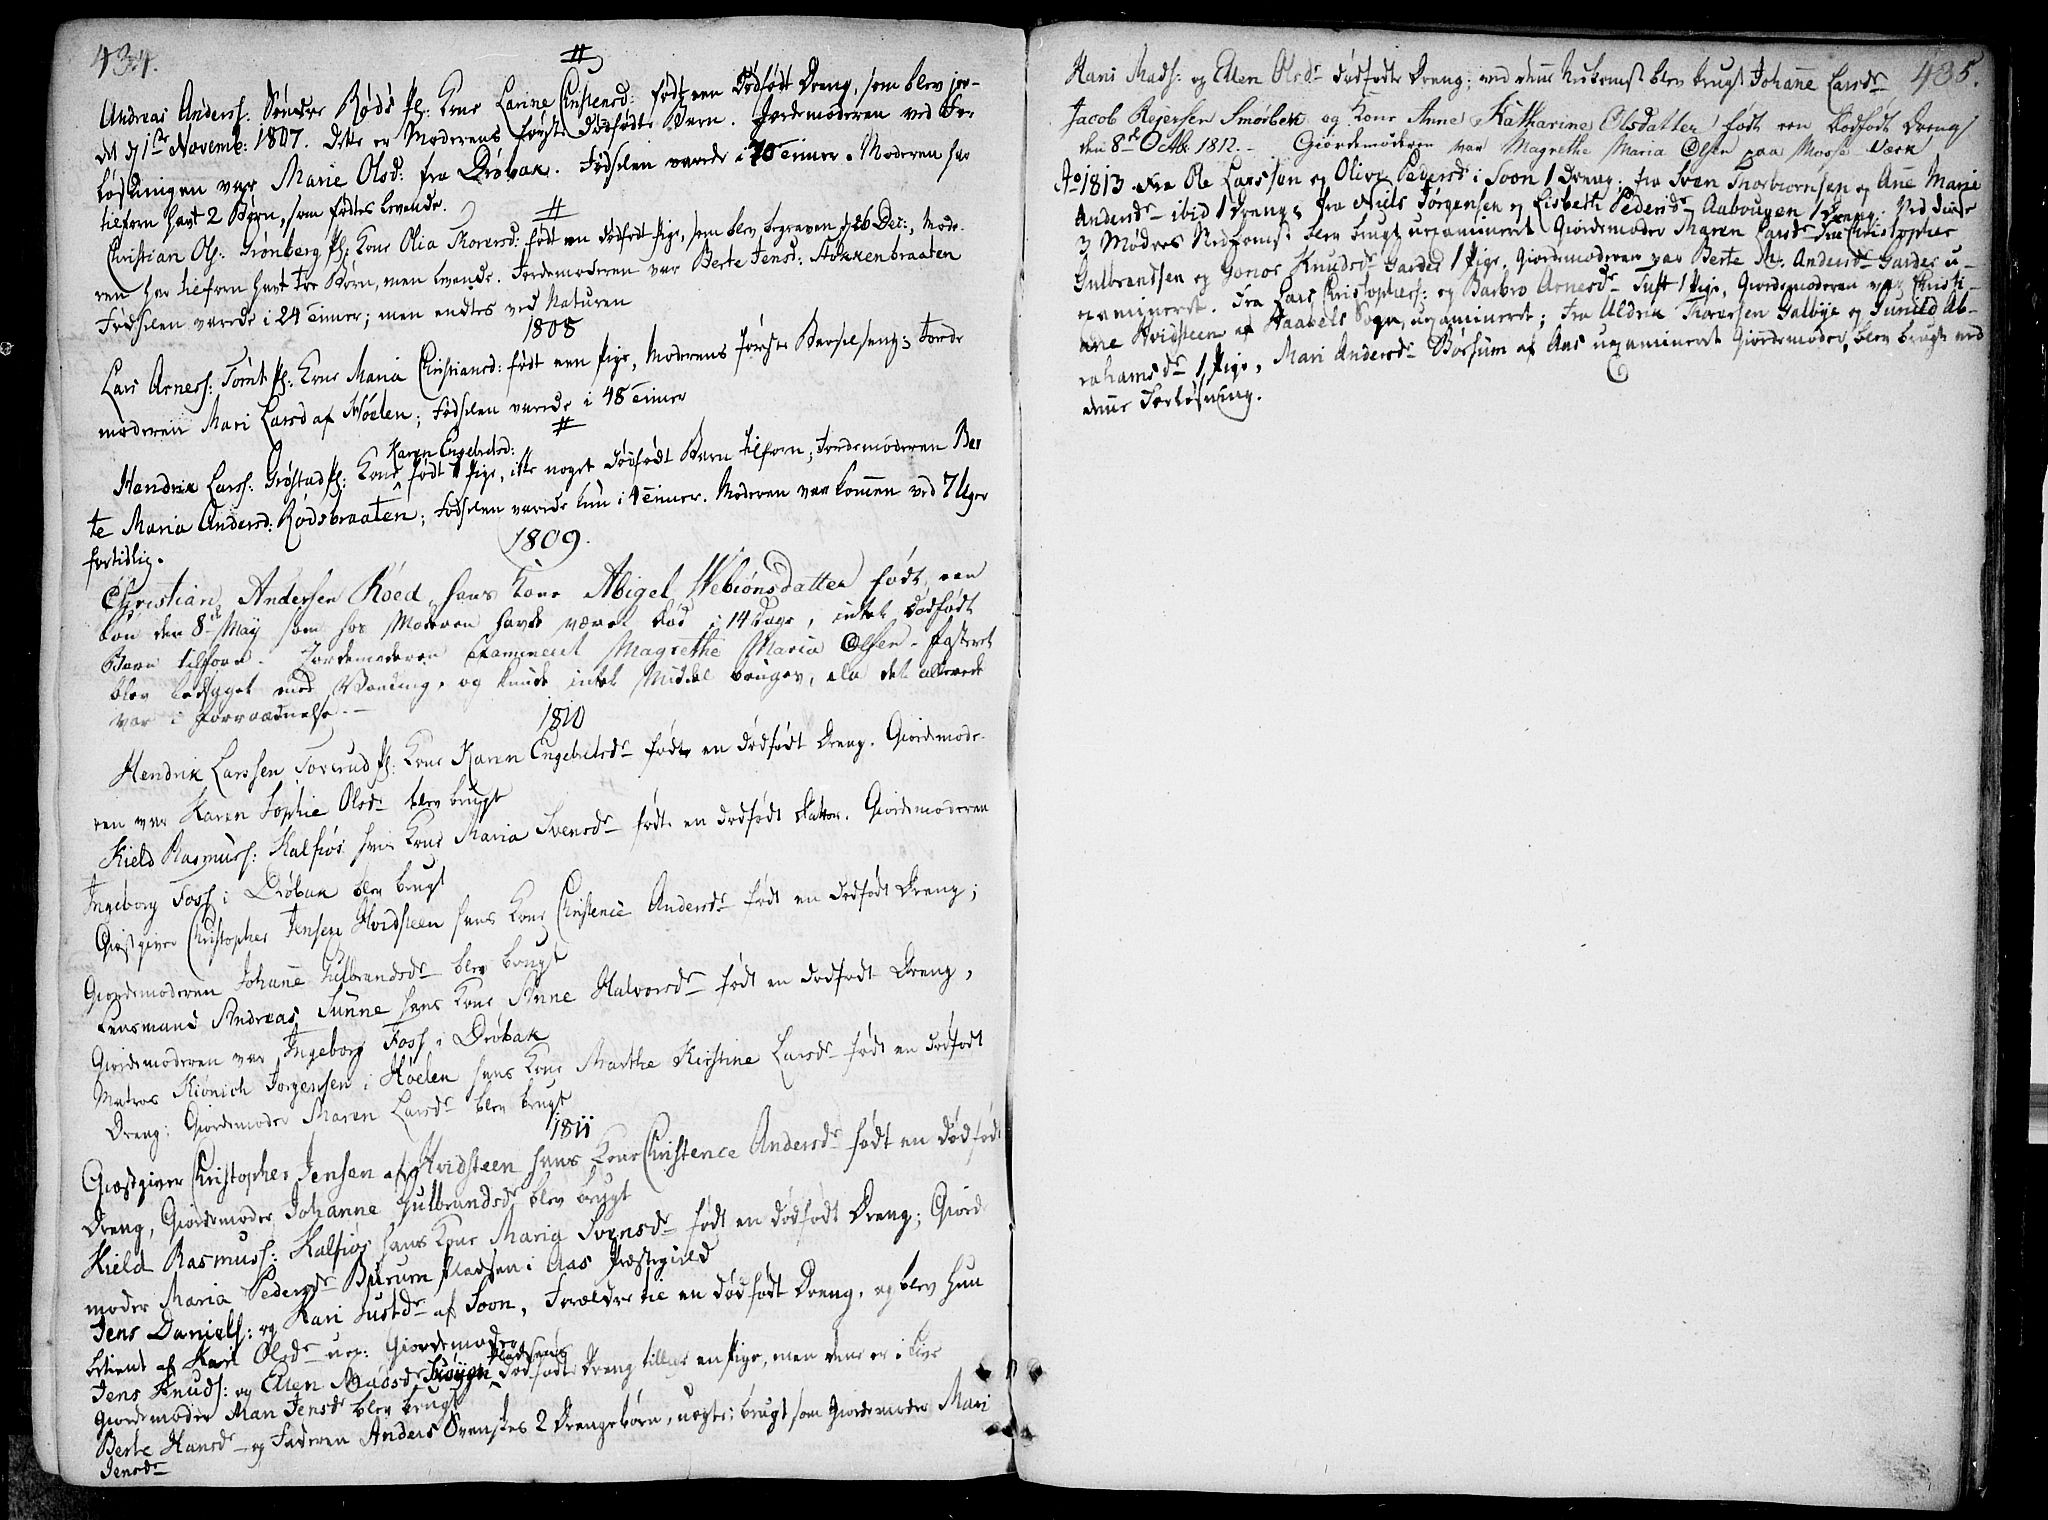 434.
#
Andreas Anders: Søndre Røds Pl: Kone Larine Christensd: født een dødfødt Dreng, som blev jor-
det d 1ste Novemb: 1807. Dette er Moderens første dødfødte Barn. Jordemoderen ved For
løsningen var Marie Olsd: fra Drøbak. Fødselen varede i 70 Timer. Moderen har
tilforn havt 2 Børn, som fødtes levende.
#
Christian Ols: Grønberg Pl: Kone Olia Thoresd: født en dødfødt Pige, som blev begraven d 26 Dec:, Mode-
ren har tilforn havt tre Børn, men levende. Jordemoderen var Berte Jensd: Stokkenbraaten
Fødselen varede i 24 Timer; men endtes ved Naturen
1808
Lars Arness: Tomt Pl: Kone Maria Christiansd: født een Pige, Moderens første Barselseng; Jorde
moderen Mari Larsd af Hölen; Fødselen varede i 48 Timer
#
Karen Engebretsd:
Hendrik Larss: Grøstad Pl: Kone født 1 Pige, ikke noget dødfødt Barn tilforn; Jordemoderen Ber
te Maria Andersd: Rødsbraaten; Fødselen varede kun i 4 Timer. Moderen var kommen ved 7 Uger
fortidlig.
1809.
Christian Andersen Röed, hans Kone Abigel Webiönsdatter født een
Søn den 8de May som hos Moderen havde været død i 14 Dage, intet dødfødt
Barn tilforn. Jordemoderen Examineret Magrethe Maria Olsen. Fosteret
blev betynget med Vending, og kunde intet Middel bruges, da det allerede
var i Forraadnelse.
1810
Hendrik Larssen Toverud Pl: Kone Karen Engebretsdr født en dødfødt Dreng. Giordemode-
ren var Karen Sophie Olsdr blev brugt
Kield Rasmuss: Kalfiøs hans Kone Maria Svensdr født en dødfødt Datter. Giordemoderen
Ingeborg Foss i Drøbak blev brugt
Giæstgiver Christopher Jensen Hvidsteen hans Kone Christence Andersdr født en dødfødt Dreng;
Giordemoderen Johanne Gulbrandsdr blev brugt
Lensmand Andreas Sunne hans Kone Anne Halvorsdr født en dødfødt Dreng,
Giordemoderen var Ingeborg Foss i Drøbak
Matros Kiönich Jorgensen i Höelen hans Kone Marthe Kirstine Larsdr født en dødfødt
Dreng; Giordemoder Maren Larsdr blev brugt
1811
Giæstgiver Christopher Jensen af Hvidsteen hans Kone Christence Andersdr født en dødfødt
Dreng, Giordemoder Johanne Gulbrandsdr blev brugt
Kield Rasmuss: Kalfiøs hans Kone Maria Svensdr født en dødfødt Dreng; Giord
moder Maria Pedersdr Burum Pladsen i Aas Præstegield
Jens Daniels: og Kari Justdr af Soon, Forældre til en dødfødt Dreng, og blev hun
betient af Kari Olsdr uex: Giordemoder
Jens Knuds: og Ellen Madsdr Skøyen Pladsens dødfødte Dreng tillige en Pige, men denne er i Live
Giordemoder Mari Jensdr blev brugt
Berte Hansdr og Faderen Anders Svenskes 2 Drengebørn, uægte; brugt som Giordemoder Mari
Jensdr
435.
Hans Mads: og Ellen Olsdr dødfødte Dreng; ved denne Nedkomst blev brugt Johanne Larsdr
Jacob Rejersen Smørbek og Kone Anne Katharine Olsdatter født een dødfødt Dreng
den 8de Octbr 1812. Giordemoderen var Magrethe Maria Olsen paa Mosse Værk
Ao 1813 fra Ole Larssen og Olive Pedersdr i Soon 1 Dreng; fra Sven Thorbiornsen og Ane Marie
Andersdr ibid 1 Dreng; fra Niels Jørgensen og Lisbeth Pedersdr Aabougen 1 Dreng; Ved disse
3 Mødres Nedkomst blev brugt uexamineret Giordemoder Maren Larsdr fra Christopher
Gulbrandsen og Gonor Knudsdr Garder 1 Pige, Giordemoderen var Berte M. Andersdr Garder u-
examineret. Fra Lars Christophers: og Barbro Arnesdr Tuft 1 Pige, Giordemoderen var Christi-
ane Hvidsteen af Haabels Sogn, uexamineret; fra Uldrik Thoresen Galbye og Gunild Ab-
rahamsdr 1 Pige, Mari Andersdr Børsum af Aas uexamineret Giordemoder, blev brugt ved
denne Forløsning.